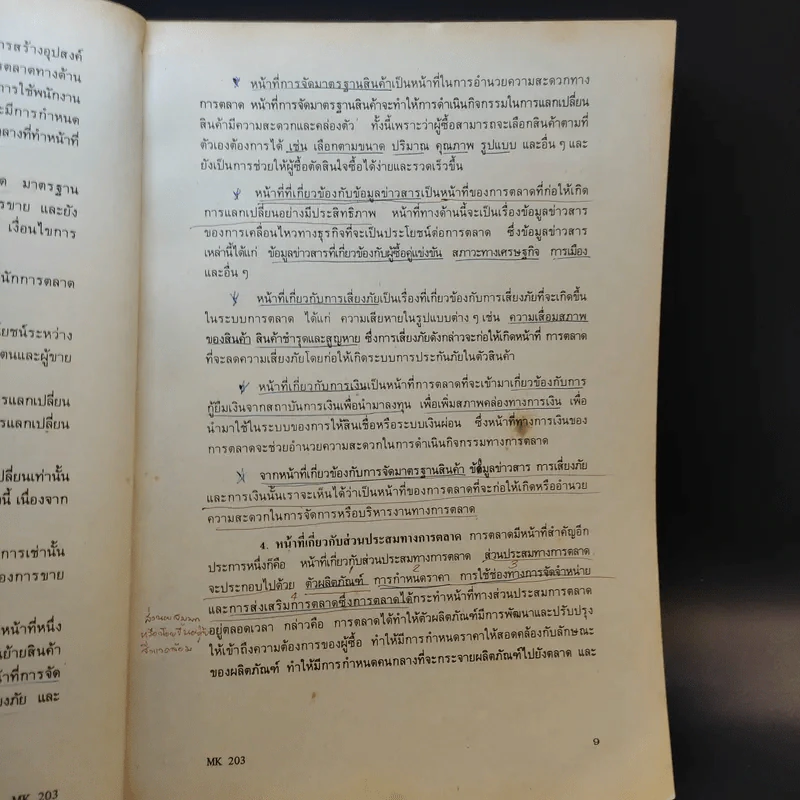 ารสร้างอุปสงค์
รตลาดทางด้าน
การใช้พนักงาน
ะมีการกำหนด
ลางที่ทำหน้าที่
ด มาตรฐาน
รขาย และยัง
เงื่อนไขการ
นักการตลาด
โยชน์ระหว่าง
ตนและผู้ขาย
รแลกเปลี่ยน
รแลกเปลี่ยน
ปลี่ยนเท่านั้น
งนี้ เนื่องจาก
การเช่านั้น
องการขาย
หน้าที่หนึ่ง
นย้ายสินค้า
น้าที่การจัด
ยงภัย และ
MK 203
หน้าที่การจัดมาตรฐานสินค้าเป็นหน้าที่ในการอำนวยความสะดวกทาง
การตลาด หน้าที่การจัดมาตรฐานสินค้าจะทำให้การดำเนินกิจกรรมในการแลกเปลี่ยน
สินค้ามีความสะดวกและคล่องตัว ทั้งนี้เพราะว่าผู้ซื้อสามารถจะเลือกสินค้าตามที่
ตัวเองต้องการได้ เช่น เลือกตามขนาด ปริมาณ คุณภาพ รูปแบบ และอื่น ๆ และ
ยังเป็นการช่วยให้ผู้ซื้อตัดสินใจซื้อได้ง่ายและรวดเร็วขึ้น
หน้าที่ที่เกี่ยวข้องกับข้อมูลข่าวสารเป็นหน้าที่ของการตลาดที่ก่อให้เกิด
การแลกเปลี่ยนอย่างมีประสิทธิภาพ หน้าที่ทางด้านนี้จะเป็นเรื่องข้อมูลข่าวสาร
ของการเคลื่อนไหวทางธุรกิจที่จะเป็นประโยชน์ต่อการตลาด ซึ่งข้อมูลข่าวสาร
เหล่านี้ได้แก่ ข้อมูลข่าวสารที่เกี่ยวข้องกับผู้ซื้อคู่แข่งขัน สภาวะทางเศรษฐกิจ การเมือง
และอื่น ๆ
หน้าที่เกี่ยวกับการเสี่ยงภัยเป็นเรื่องที่เกี่ยวข้องกับการเสี่ยงภัยที่จะเกิดขึ้น
ในระบบการตลาด ได้แก่ ความเสียหายในรูปแบบต่าง ๆ เช่น ความเสื่อมสภาพ
ของสินค้า สินค้าชำรุดและสูญหาย ซึ่งการเสี่ยงภัยดังกล่าวจะก่อให้เกิดหน้าที่ การตลาด
ที่จะลดความเสี่ยงภัยโดยก่อให้เกิดระบบการประกันภัยในตัวสินค้า
หน้าที่เกี่ยวกับการเงินเป็นหน้าที่การตลาดที่จะเข้ามาเกี่ยวข้องกับการ
กู้ยืมเงินจากสถาบันการเงินเพื่อนำมาลงทุน เพื่อเพิ่มสภาพคล่องทางการเงิน เพื่อ
นำมาใช้ในระบบของการให้สินเชื่อหรือระบบเงินผ่อน ซึ่งหน้าที่ทางการเงินของ
การตลาดจะช่วยอำนวยความสะดวกในการดำเนินกิจกรรมทางการตลาด
จากหน้าที่เกี่ยวข้องกับการจัดมาตรฐานสินค้า ข้อมูลข่าวสาร การเสี่ยงภัย
และการเงินนั้นเราจะเห็นได้ว่าเป็นหน้าที่ของการตลาดที่จะก่อให้เกิดหรืออำนวย
ความสะดวกในการจัดการหรือบริหารงานทางการตลาด
4. หน้าที่เกี่ยวกับส่วนประสมทางการตลาด การตลาดมีหน้าที่สำคัญอีก
ประการหนึ่งก็คือ หน้าที่เกี่ยวกับส่วนประสมทางการตลาด ส่วนประสมทางการตลาด
จะประกอบไปด้วย ตัวผลิตภัณฑ์ การกำหนดราคา การใช้ช่องทางการจัดจำหน่าย
และการส่งเสริมการตลาดซึ่งการตลาดได้กระทำหน้าที่ทางส่วนประสมการตลาด
อยู่ตลอดเวลา กล่าวคือ การตลาดได้ทำให้ตัวผลิตภัณฑ์มีการพัฒนาและปรับปรุง
ให้เข้าถึงความต้องการของผู้ซื้อ ทำให้มีการกำหนดราคาให้สอดคล้องกับลักษณะ
ของผลิตภัณฑ์ ทำให้มีการกำหนดคนกลางที่จะกระจายผลิตภัณฑ์ไปยังตลาด และ
9
MK 203